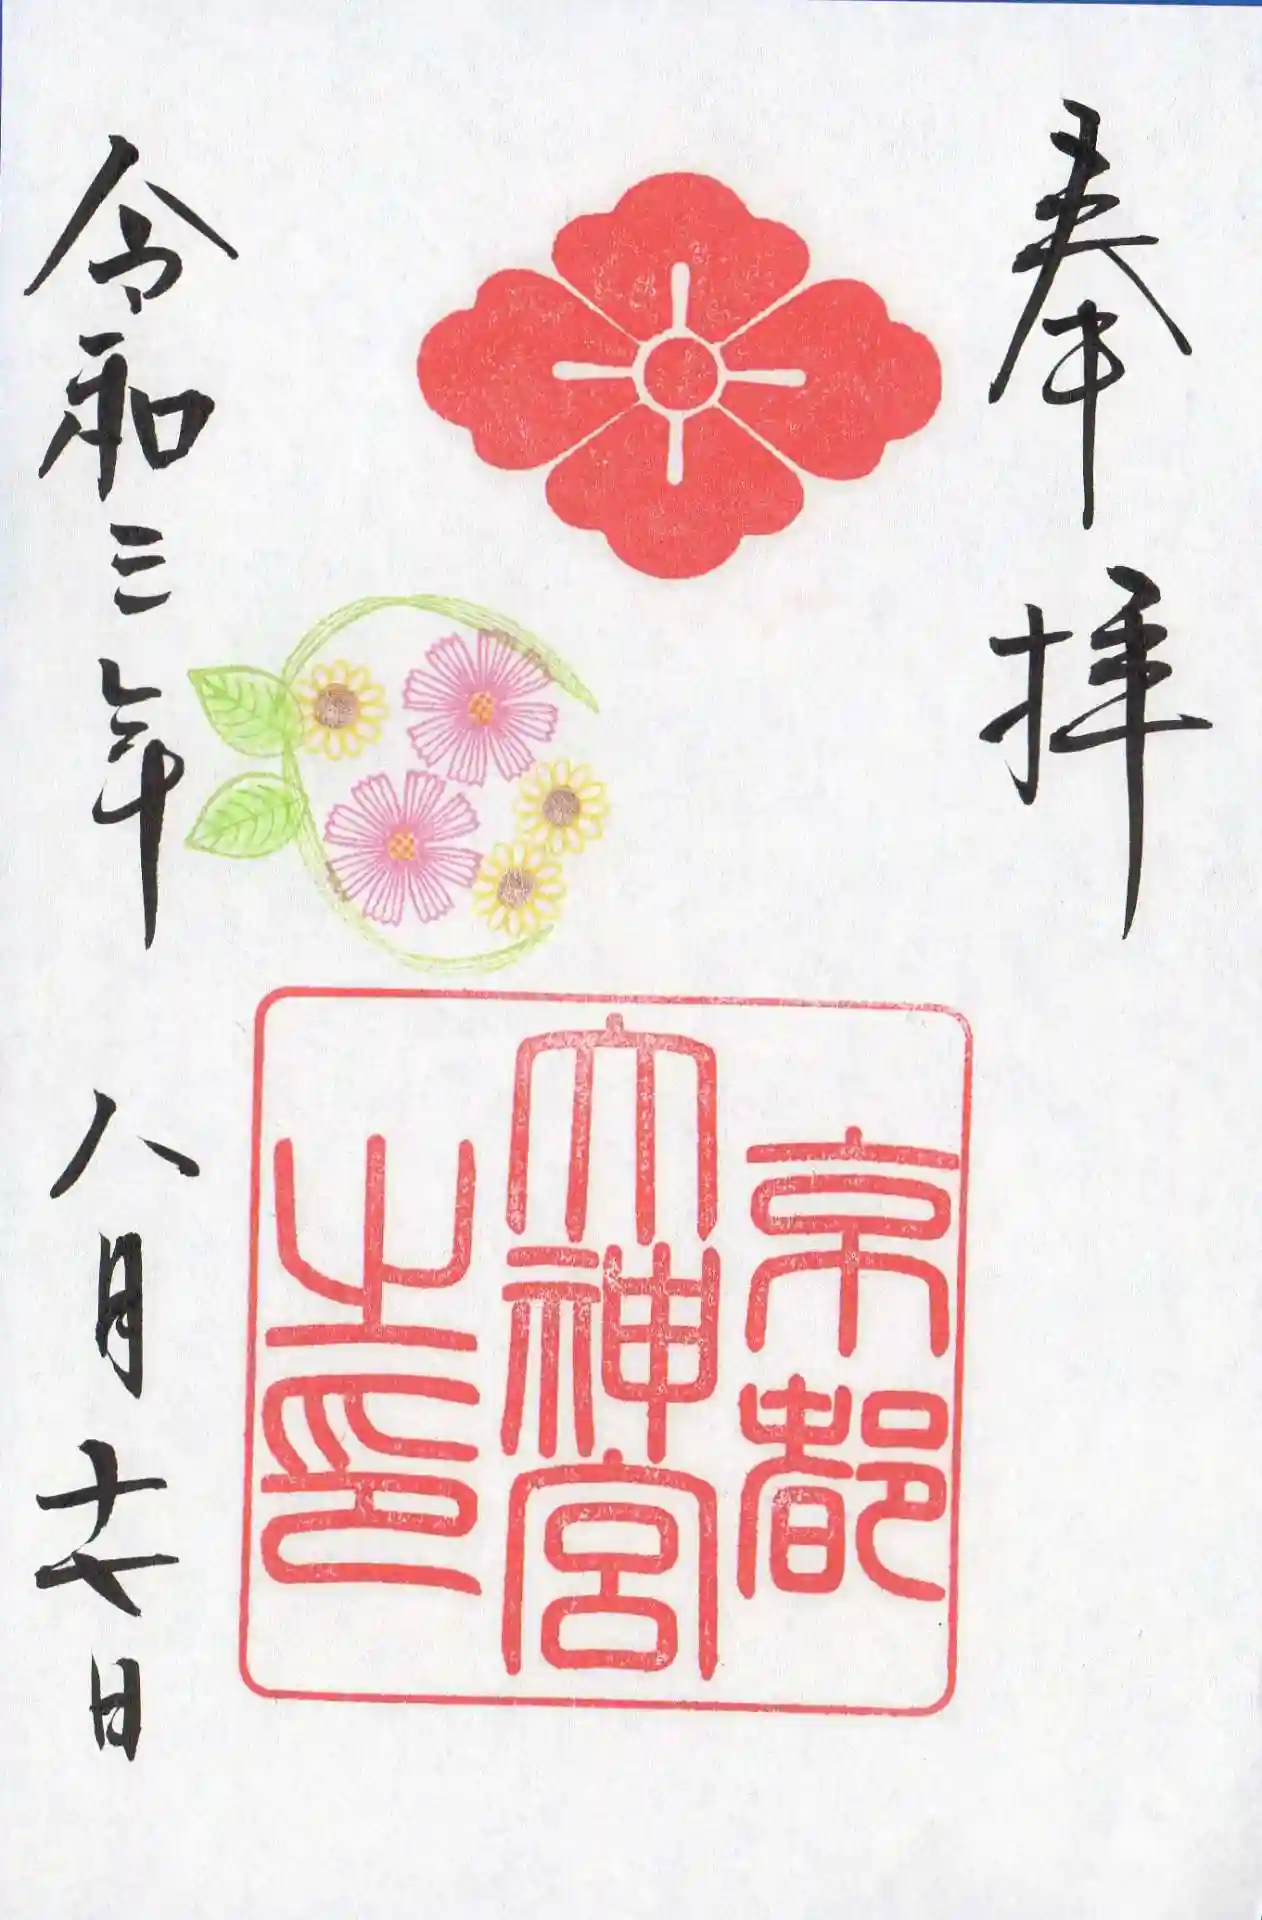 奉拝
京都
大神宮
之印
令和三年 八月十七日